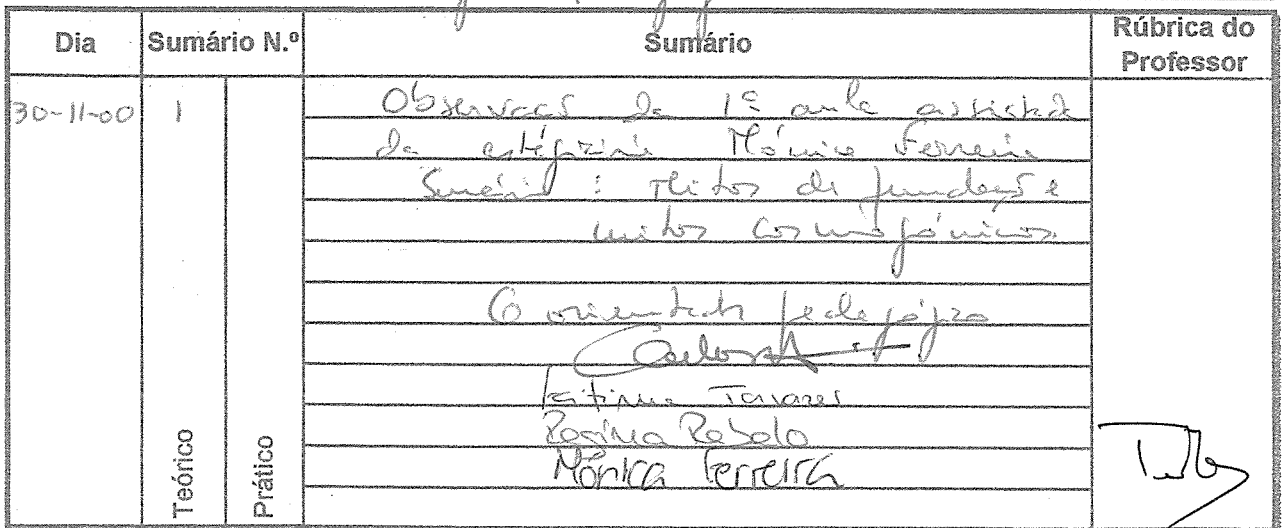 Dia Sumário N.º Sumário Rúbrica do Professor
30-11-00 1 Observação da 1ª aula assistida
da estagiária Mónica Ferreira
Sumário : Mitos de fundação e
mitos cosmogónicos.
O orientador pedagógico
Carlos
Tavares
Rosina Rabolo
Mónica Ferreira
Teórico
Prático